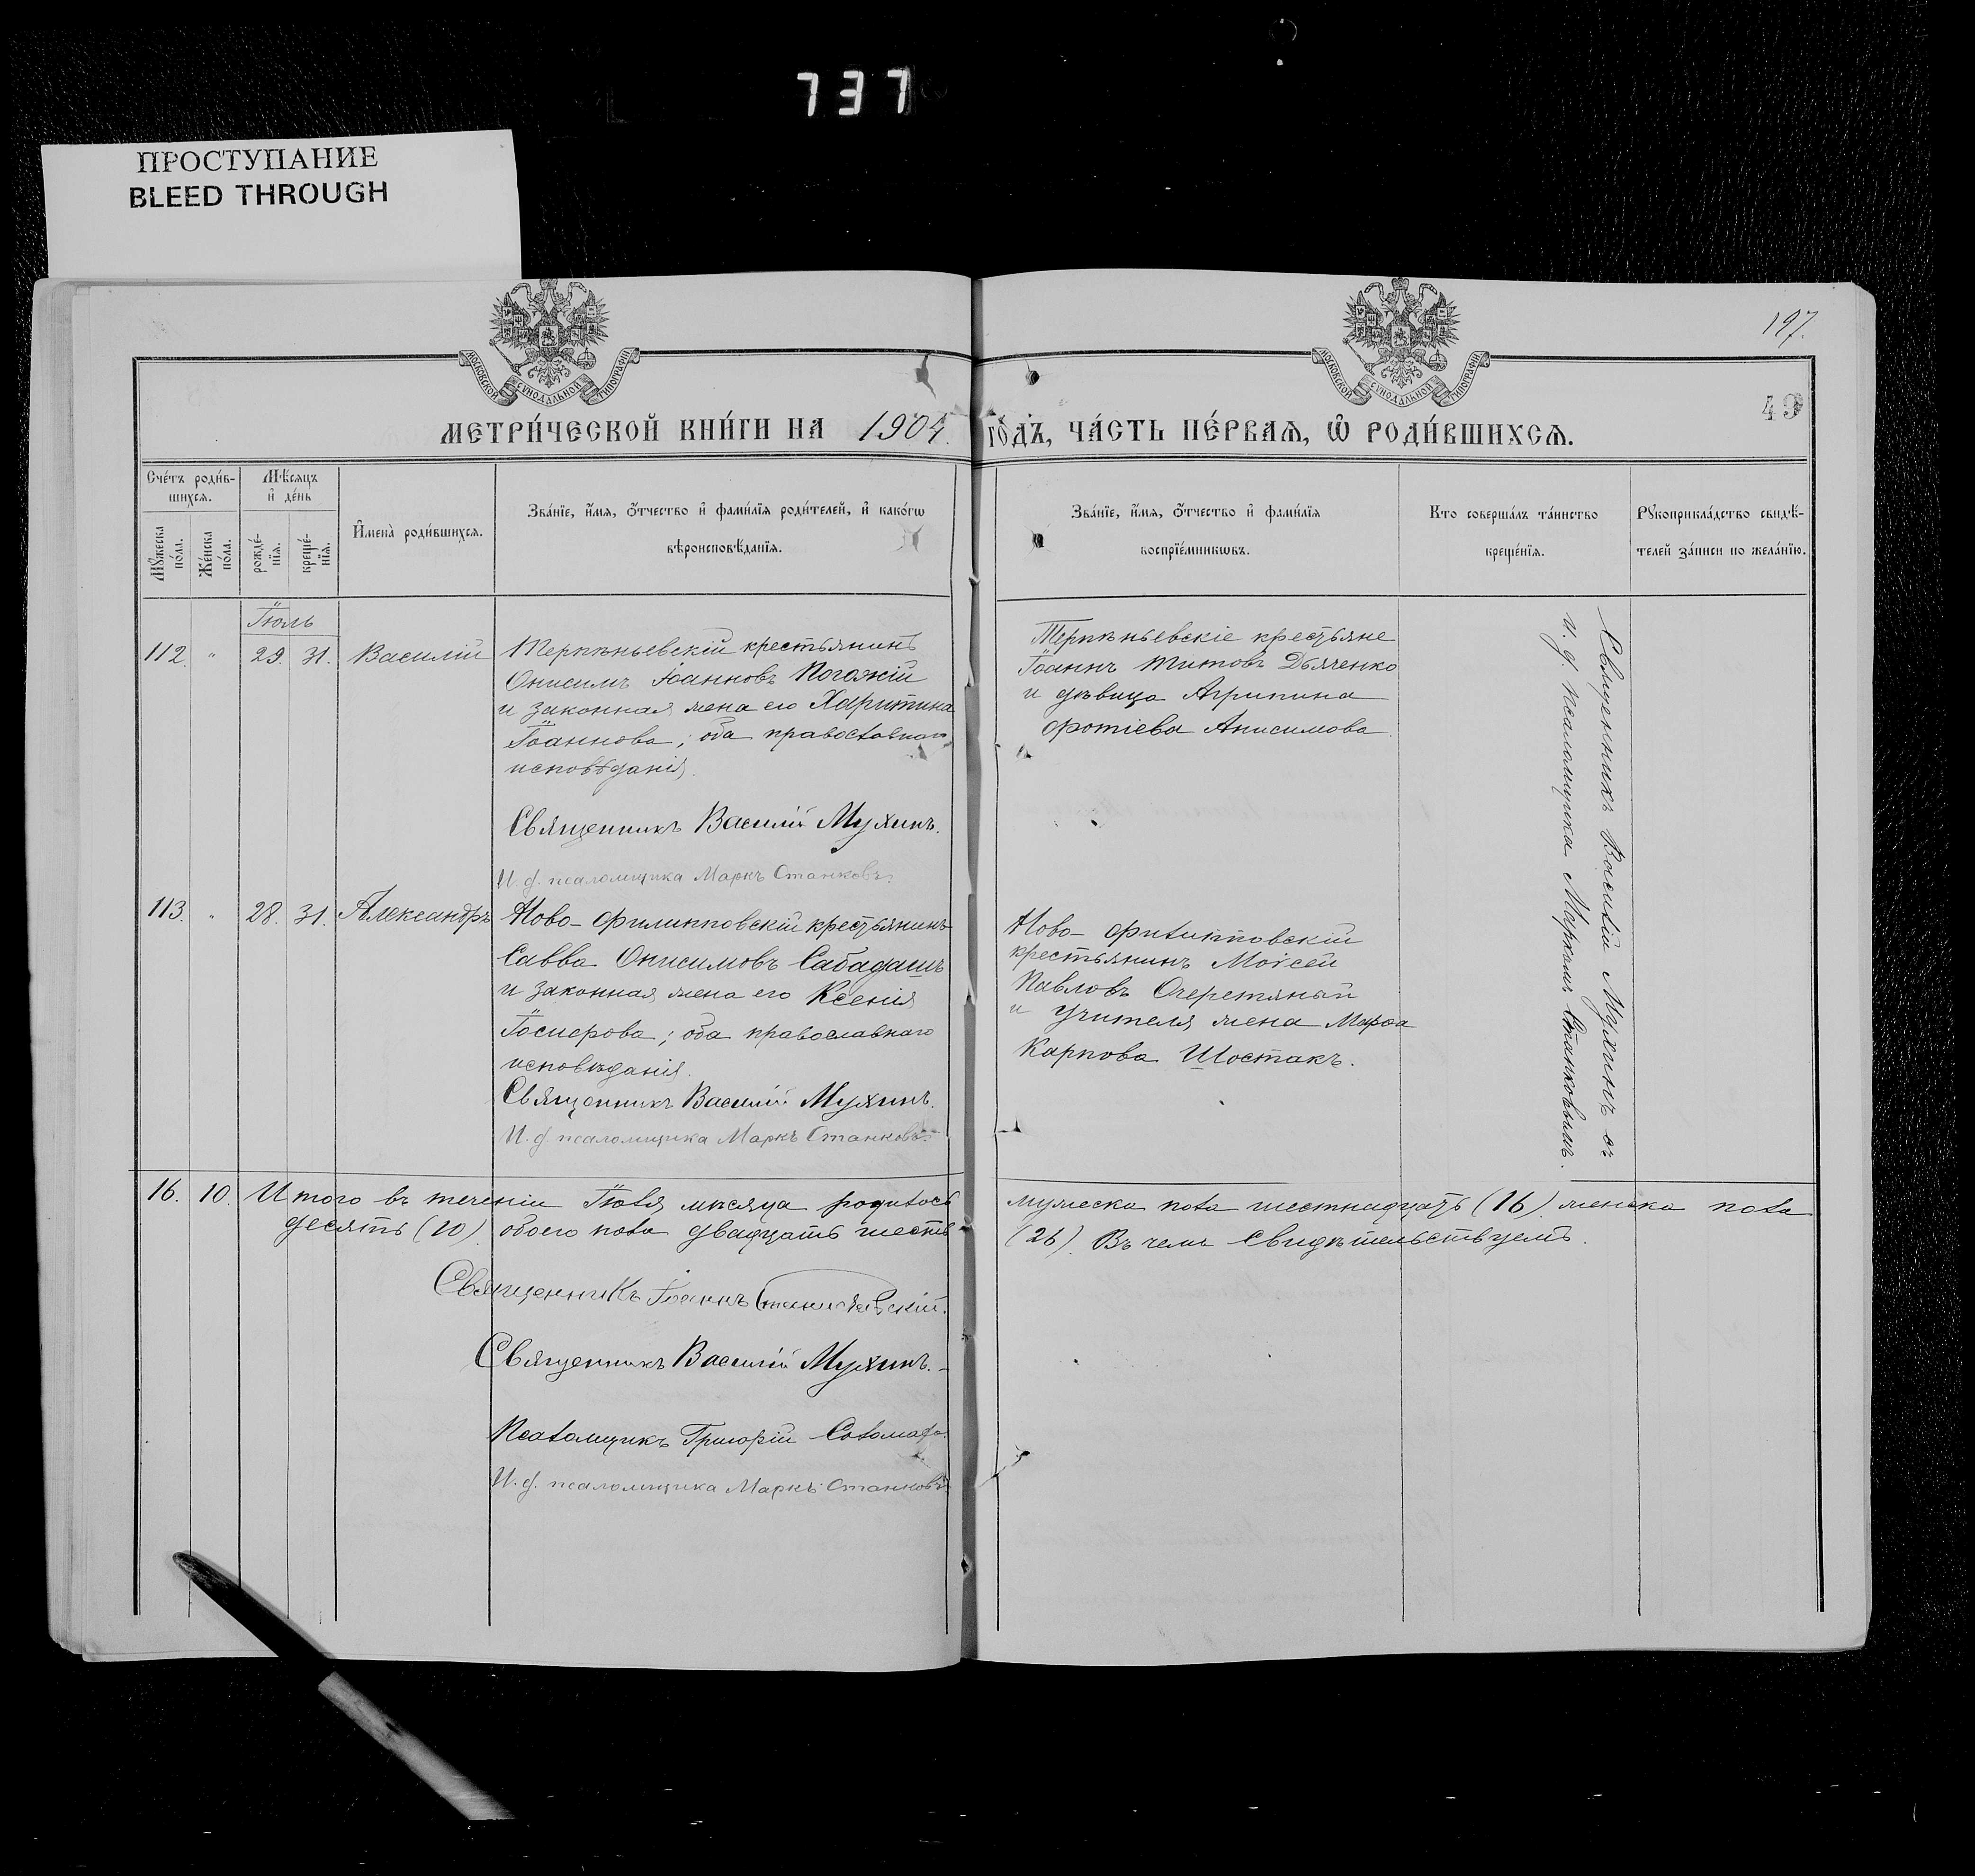 737
ПРОСТУПАНИЕ
BLEED THROUGH
МОСКОВСКОЙ СѴНОДАЛЬНОЙ ТИПОГРАФІИ
МОСКОВСКОЙ СѴНОДАЛЬНОЙ ТИПОГРАФІИ
197.
49
МЕТРИ́ЧЕСКОЙ КНИ́ГИ НА 1904. ГО́ДЪ, ЧА́СТЬ ПЕ́РВАЯ, Ѡ҆ РОДИ́ВШИХСЯ.
Сче́тъ роди́в-
шихся.
Мꙋ́жеска
по́ла.
Же́нска
по́ла.
Мѣ́сяцъ
и҆ де́нь
рожде́-
нїя.
креще́-
нїя.
И҆мена̀ роди́вшихся.
Зва́нїе, и҆́мя, ѻ҆́тчество и҆ фами́лїя роди́телей, и҆ како́гѡ
вѣроисповѣ́данїя.
Зва́нїе, и҆́мя, ѻ҆́тчество и҆ фами́лїя
воспрїе́мникѡвъ.
Кто соверша́лъ та́инство
креще́нїя.
Рꙋкоприкла́дство свидѣ́-
телей за́писи по жела́нїю.
Іюль
112. " 29. 31. Василій
Терпѣньевскій крестьянинъ
Онисимъ Іоанновъ Погожій
и законная жена его Харитина
Іоаннова; оба православнаго
исповѣданія.
Священникъ Василій Мухинъ.
И. д. псаломщика Маркъ Станковъ.
Терпѣньевскіе крестьяне
Іоаннъ Титовъ Дьяченко
и дѣвица Агрипина
Фотіева Анисимова.
Священникъ Василій Мухинъ съ
и. д. псаломщика Маркомъ Станковымъ.
113. " 28. 31. Александръ
Ново-Филипповскій крестьянинъ
Савва Онисимовъ Сабадашъ
и законная жена его Ксенія
Іосифова; оба православнаго
исповѣданія.
Священникъ Василій Мухинъ.
И. д. псаломщика Маркъ Станковъ.
Ново-Филипповскій
крестьянинъ Моісей
Павловъ Очеретяный
и учителя жена Марфа
Карпова Шостакъ.
16. 10. Итого въ теченіи Іюля мѣсяца родилось мужеска пола шестнадцать (16) женска пола
десять (10) обоего пола двадцать шесть (26). Въ чемъ свидѣтельствуемъ.
Священникъ Іоаннъ
Священникъ Василій Мухинъ.
Псаломщикъ Григорій
И. д. псаломщика Маркъ Станковъ